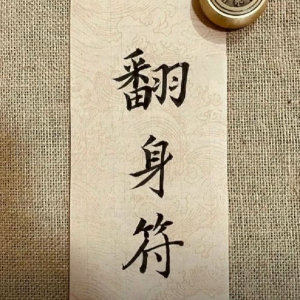 翻身符